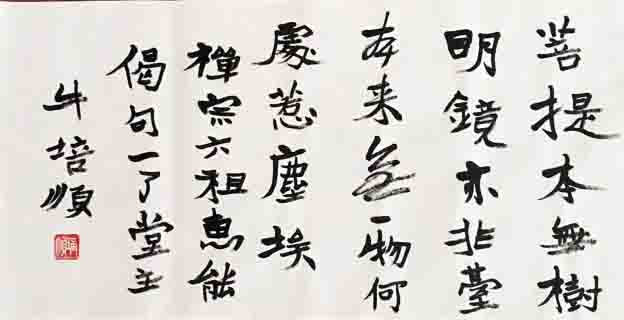 菩提本無樹
明鏡亦非臺
本来無一物何
處惹塵埃
禅宗六祖惠能
偈句一了堂主
牛培順